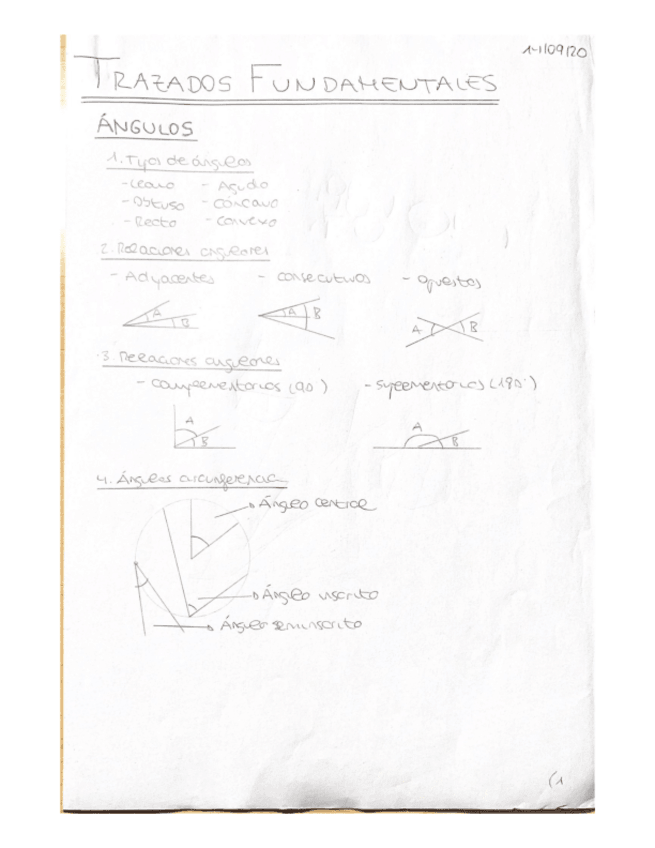 14/09/20
TRAZADOS FUNDAMENTALES
ÁNGULOS
1. Tipos de ángulos
- Llano - Agudo
- Obtuso - Cóncavo
- Recto - Convexo
2. Relaciones angulares
- Adyacentes - consecutivos - opuestos
A B A B A B
3. Relaciones angulares
- complementarios (90°) - suplementarios (180°)
A B A B
4. Ángulos circunferencia
Ángulo central
Ángulo inscrito
Ángulo seminscrito
(1